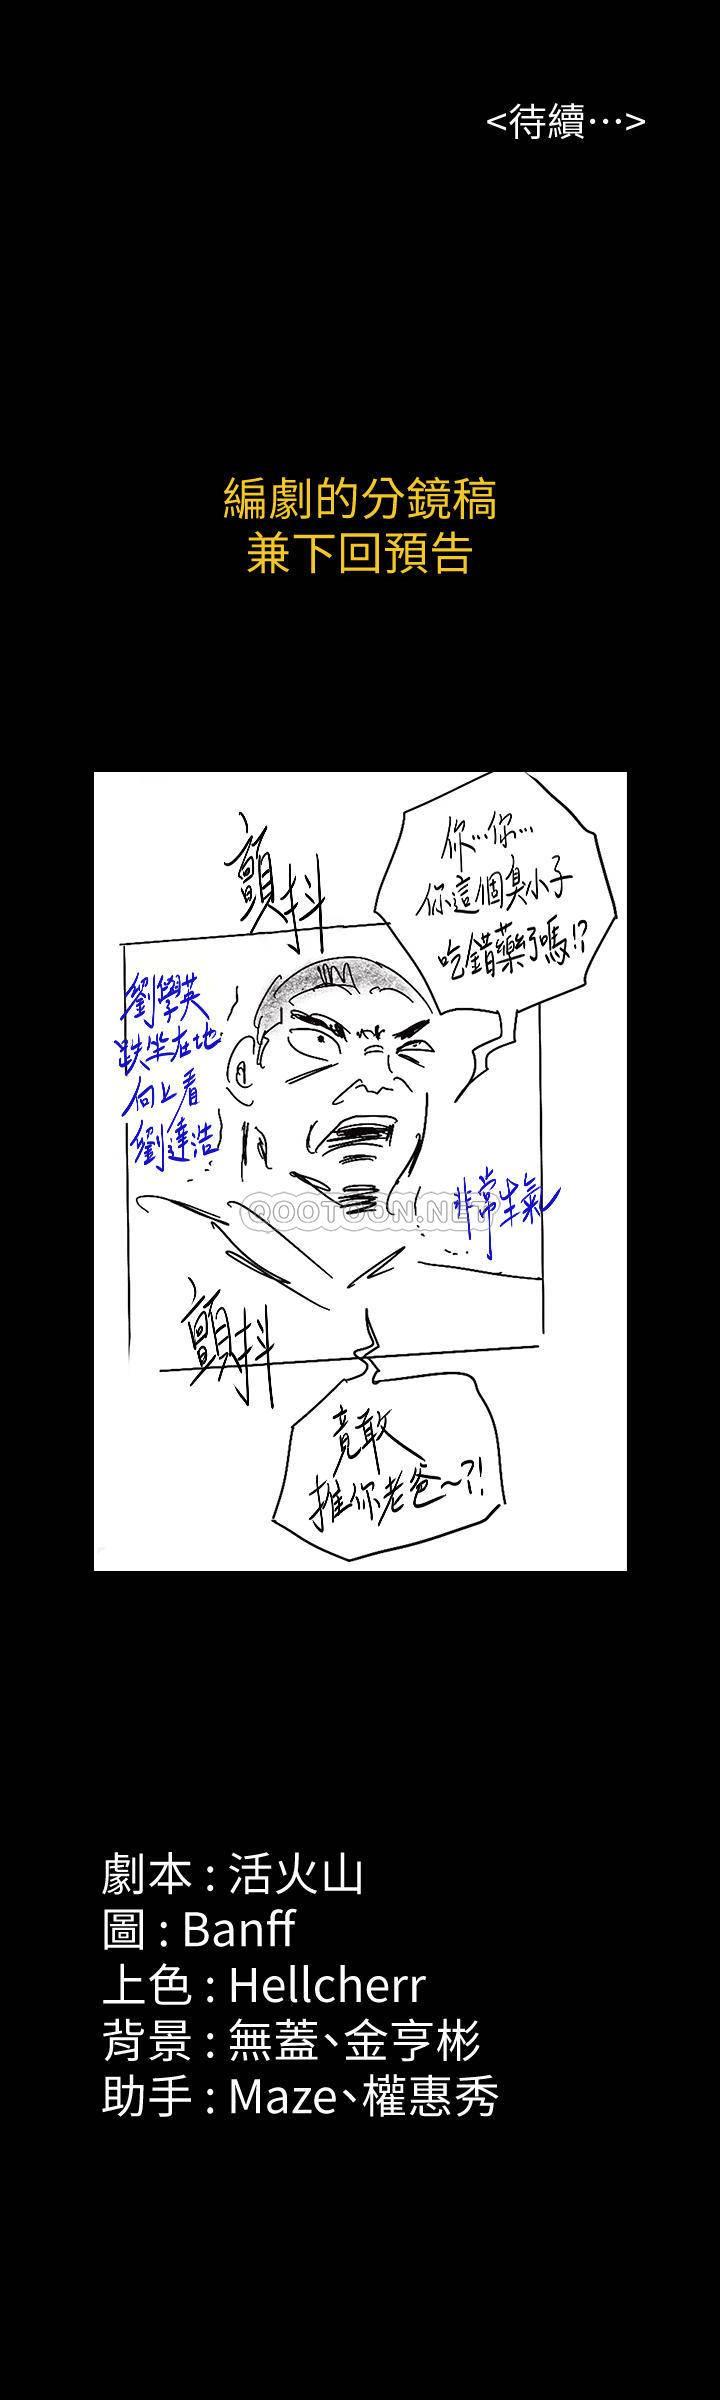 <待續…>
編劇的分鏡稿
兼下回預告
你…你…
你這個臭小子
吃錯藥了嗎!?
顫抖
劉學英
跌坐在地
向上看
劉達浩
非常生氣
QOOTOON.NET
顫抖
竟敢
推你老爸~?!
劇本 : 活火山
圖 : Banff
上色 : Hellcherr
背景 : 無蓋、金亨彬
助手 : Maze、權惠秀